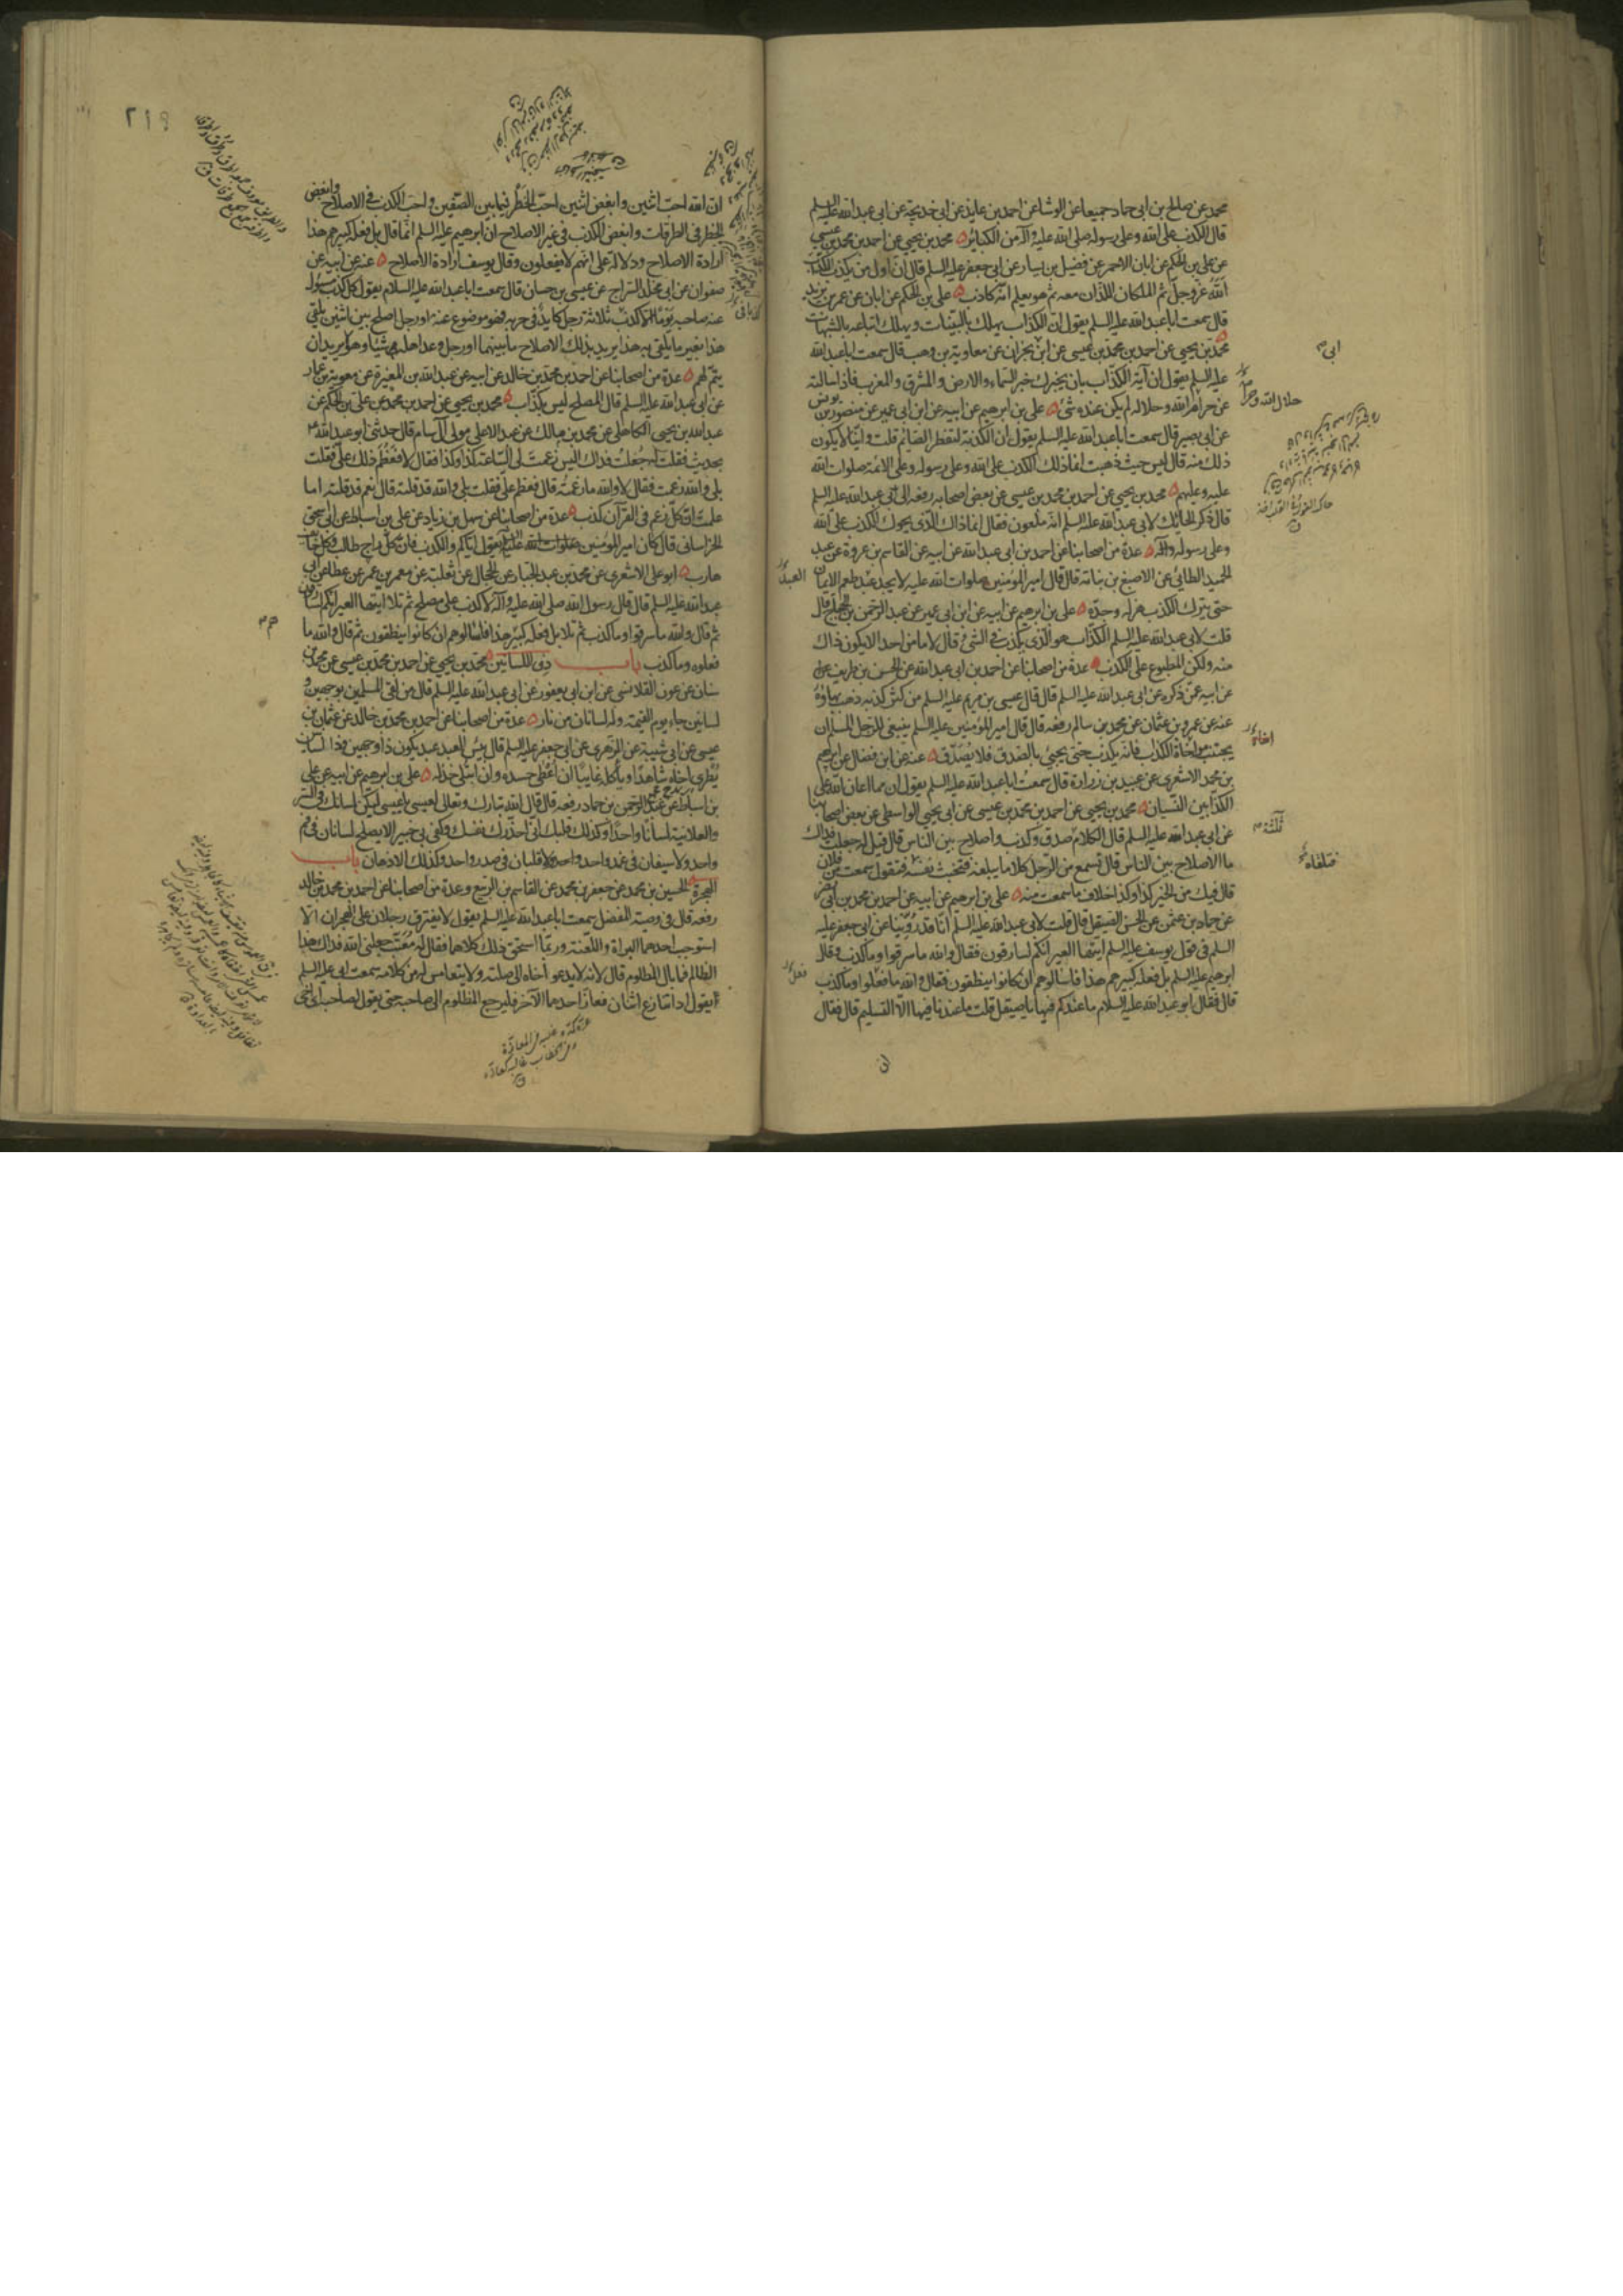 محمد عن صالح بن ابی حماد جمیعا عن الوشا عن احمد بن عایذ عن ابی خدیجة عن ابی عبد الله علیه السلم
قال الکذب علی الله وعلی رسوله صلی الله علیه وآله من الکبائر محمد بن یحیی عن احمد بن محمد بن عیسی
عن علی بن الحکم عن ابان الاحمر عن فضیل بن یسار عن ابی جعفر علیه السلم قال ان اول من یکذب الکذاب
الله عز وجل ثم الملکان اللذان معه ثم هو یعلم انه کاذب علی بن الحکم عن ابان عن عمر بن یزید
قال سمعت ابا عبد الله علیه السلم یقول ان الکذاب یهلک بالبینات ویهلک اتباعه بالشبهات
محمد بن یحیی عن احمد بن محمد بن عیسی عن ابن نجران عن معاویة بن وهب قال سمعت ابا عبد الله
علیه السلم یقول ان آیة الکذاب بان یخبرک خبر السماء والارض والمشرق والمغرب فاذا سالته
عن حرام الله وحلاله لم یکن عنده شئ علی بن ابرهیم عن ابیه عن ابن ابی عمیر عن منصور بن یونس
عن ابی بصیر قال سمعت ابا عبد الله علیه السلم یقول ان الکذبة لتفطر الصائم قلت وایّنا لا یکون
ذلک منه قال لیس حیث ذهبت انما ذلک الکذب علی الله وعلی رسوله وعلی الائمة صلوات الله
علیه وعلیهم محمد بن یحیی عن احمد بن محمد بن عیسی عن بعض اصحابه رفعه الی ابی عبد الله علیه السلم
قال ذکر الحائک لابی عبد الله علیه السلم انه ملعون فقال انما ذاک الذی یحوک الکذب علی الله
وعلی رسوله وآله عدة من اصحابنا عن احمد بن ابی عبد الله عن ابیه عن القاسم بن عروة عن عبد
الحمید الطائی عن الاصبغ بن نباتة قال قال امیر المؤمنین صلوات الله علیه لا یجد عبد طعم الایمان
حتی یترک الکذب هزله وجدّه علی بن ابرهیم عن ابیه عن ابن ابی عمیر عن عبد الرحمن بن الحجاج قال
قلت لابی عبد الله علیه السلم الکذاب هو الذی یکذب فی الشئ قال لا ما من احد الا یکون ذاک
منه ولکن المطبوع علی الکذب عدة من اصحابنا عن احمد بن ابی عبد الله عن الحسن بن طریف عن
عن ابیه عمن ذکره عن ابی عبد الله علیه السلم قال قال عیسی بن مریم علیه السلم من کثر کذبه ذهب بهاؤه
عنه عن عمرو بن عثمان عن محمد بن سالم رفعه قال قال امیر المؤمنین علیه السلم ینبغی للرجل المسلم ان
یجتنب مواخاة الکذاب فانه یکذب حتی یجیئ بالصدق فلا یُصَدَّق عنه عن ابن فضال عن ابرهیم
بن محمد الاشعری عن عبید بن زرارة قال سمعت ابا عبد الله علیه السلم یقول ان مما اعان الله علی
الکذابین النسیان محمد بن یحیی عن احمد بن محمد بن عیسی عن ابی یحیی الواسطی عن بعض اصحابنا
عن ابی عبد الله علیه السلم قال الکلام صدق وکذب واصلاح بین الناس قال قیل له جعلت فداک
ما الاصلاح بین الناس قال تسمع من الرجل کلاما یبلغه فتخبث نفسه فتقول سمعت من فلان
قال فیک من الخیر کذا وکذا خلاف ما سمعت منه علی بن ابرهیم عن ابیه عن احمد بن محمد بن ابی نصر
عن حماد بن عثمن عن الحسن الصیقل قال قلت لابی عبد الله علیه السلم انا قد رُوّینا عن ابی جعفر علیه
السلم فی قول یوسف علیه السلم ایتها العیر انکم لسارقون فقال والله ما سرقوا وما کذب وقال
ابرهیم علیه السلم بل فعله کبیرهم هذا فاسألوهم ان کانوا ینطقون فقال والله ما فعلوا وما کذب
قال فقال ابو عبد الله علیه السلام ما عندکم فیها یا صیقل قلت ما عندنا فیها الا التسلیم قال فقال
ان
ابی
حلال الله وحرامه
العبد
اخاه
ثلثة
فتلقاه
فعل
٢١٩
ان الله احب اثنین وابغض اثنین احبّ الخطر فیما بین الصفین واحب الکذب فی الاصلاح وابغض
الخطر فی الطرقات وابغض الکذب فی غیر الاصلاح ان ابرهیم علیه السلم انما قال بل فعله کبیرهم هذا
ارادة الاصلاح ودلالة علی انهم لا یفعلون وقال یوسف ارادة الاصلاح عنه عن ابیه عن
صفوان عن ابی مخلد السراج عن عیسی بن حسان قال سمعت ابا عبد الله علیه السلام یقول کل کذب مسؤل
عنه صاحبه یومًا الا کذب ثلاثة رجل کاید فی حربه فهو موضوع عنه او رجل اصلح بین اثنین یلقی
هذا بغیر ما یلقی به هذا یرید بذلک الاصلاح ما بینهما او رجل وعد اهله شیئا وهو لا یرید ان
یتم لهم عدة من اصحابنا عن احمد بن محمد بن خالد عن ابیه عن عبد الله بن المغیرة عن معویة بن عمار
عن ابی عبد الله علیه السلم قال المصلح لیس بکذاب محمد بن یحیی عن احمد بن محمد عن علی بن الحکم عن
عبد الله بن یحیی الکاهلی عن محمد بن مالک عن عبد الاعلی مولی آل سام قال حدثنی ابو عبد الله
بحدیث فقلت له جُعلت فداک الیس زعمت لی الساعة کذا وکذا فقال لا فعَظُم ذلک علیّ فقلت
بلی والله زعمت فقال لا والله ما زعمته قال فعظم علی فقلت بلی والله قد قلته قال نعم قد قلته اما
علمت ان کل زعم فی القرآن کذب عدة من اصحابنا عن سهل بن زیاد عن علی بن اسباط عن ابی اسحق
الخراسانی قال کان امیر المؤمنین صلوات الله علیه یقول ایاکم والکذب فان کل راج طالب وکل خائف
هارب ابو علی الاشعری عن محمد بن عبد الجبار عن الحجال عن ثعلبة عن معمر بن عمر عن عطا عن ابی
عبد الله علیه السلم قال قال رسول الله صلی الله علیه وآله لا کذب علی مصلح ثم تلا ایتها العیر انکم لسارقون
ثم قال والله ما سرقوا وما کذب ثم تلا بل فعله کبیرهم هذا فاسألوهم ان کانوا ینطقون ثم قال والله ما
فعلوه وما کذب باب ذی اللسانین محمد بن یحیی عن احمد بن محمد بن عیسی عن محمد بن
سنان عن عون القلانسی عن ابن ابی یعفور عن ابی عبد الله علیه السلم قال من لقی المسلمین بوجهین و
لسانین جاء یوم القیمة وله لسانان من نار عدة من اصحابنا عن احمد بن محمد بن خالد عن عثمان بن
عیسی عن ابی شیبة عن الزهری عن ابی جعفر علیه السلم قال بئس العبد عبد یکون ذا وجهین وذا لسانین
یُطری اخاه شاهدًا ویأکله غایبًا ان اُعطی حسده وان ابتلی خذله علی بن ابرهیم عن ابیه عن علی
بن اسباط عن عبد الرحمن بن حماد رفعه قال قال الله تبارک وتعالی لعیسی یا عیسی لیکن لسانک فی السر
والعلانیة لسانًا واحدًا وکذلک قلبک انی احذرک نفسک وکفی بی خبیرا لا یصلح لسانان فی فم
واحد ولا سیفان فی غمد واحد ولا قلبان فی صدر واحد وکذلک الاذهان باب
الهجرة الحسین بن محمد عن جعفر بن محمد عن القاسم بن الربیع وعدة من اصحابنا عن احمد بن محمد بن خالد
رفعه قال فی وصیة المفضل سمعت ابا عبد الله علیه السلم یقول لا یفترق رجلان علی الهجران الا
استوجب احدهما البراة واللعنة وربما استحق ذلک کلاهما فقال له معتّب جعلنی الله فداک هذا
الظالم فما بال المظلوم قال لانه لا یدعو اخاه الی صلته ولا یتغامس له من کلامه سمعت ابی علیه السلم
یقول اذا تنازع اثنان فعازّ احدهما الآخر فلیرجع المظلوم الی صاحبه حتی یقول لصاحبه ای اخی